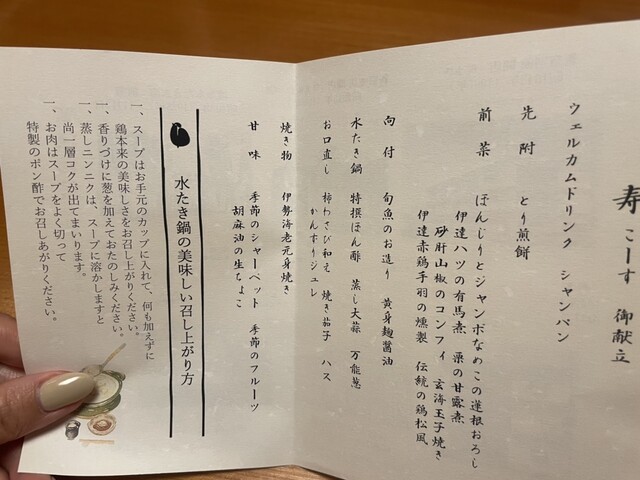 寿こーす 御献立
ウェルカムドリンク シャンパン
先附 とり煎餅
前菜 ぼんじりとジャンボなめこの蓮根おろし
伊達ハツの有馬煮 栗の甘露煮
砂肝山椒のコンフィ 玄海玉子焼き
伊達赤鶏手羽の燻製 伝統の鶏松風
向付 旬魚のお造り 黄身麹醤油
水たき鍋 特撰ぽん酢 蒸し大蒜 万能葱
お口直し 柿わさび和え 焼き茄子 ハス
かんずりジュレ
焼き物 伊勢海老元身焼き
甘味 季節のシャーベット 季節のフルーツ
胡麻油の生ちょこ
水たき鍋の美味しい召し上がり方
一、スープはお手元のカップに入れて、何も加えずに
鶏本来の美味しさをお召し上がりください。
一、香りづけに葱を加えておたのしみください。
一、蒸しニンニクは、スープに溶かしますと
尚一層コクが出てまいります。
一、お肉はスープをよく切って
特製のポン酢でお召しあがりください。